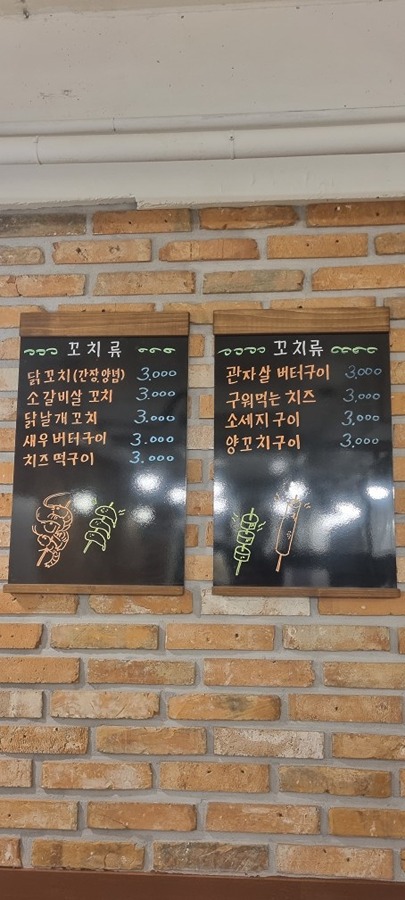 꼬치류
닭꼬치(간장,양념) 3.000
소갈비살 꼬치 3.000
닭날개꼬치 3.000
새우버터구이 3.000
치즈떡구이 3.000
꼬치류
관자살 버터구이 3,000
구워먹는 치즈 3,000
소세지구이 3,000
양꼬치구이 3,000